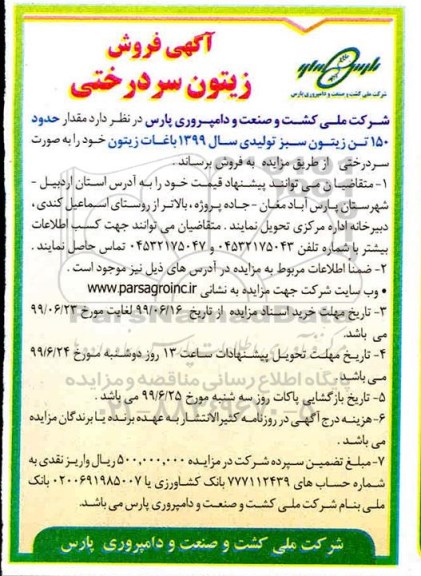 آگهی فروش
زیتون سردرختی
شرکت ملی کشت و صنعت و دامپروری پارس
شرکت ملی کشت و صنعت و دامپروری پارس در نظر دارد مقدار حدود
۱۵۰ تن زیتون سبز تولیدی سال ۱۳۹۹ باغات زیتون خود را به صورت
سردرختی از طریق مزایده به فروش برساند .
۱- متقاضیان می توانند پیشنهاد قیمت خود را به آدرس استان اردبیل -
شهرستان پارس آباد مغان - جاده پروژه ، بالاتر از روستای اسماعیل کندی ،
دبیرخانه اداره مرکزی تحویل نمایند . متقاضیان می توانند جهت کسب اطلاعات
بیشتر با شماره تلفن ۰۴۵۳۲۱۷۵۰۴۳ و ۰۴۵۳۲۱۷۵۰۴۷ تماس حاصل نمایند .
۲- ضمنا اطلاعات مربوط به مزایده در آدرس های ذیل نیز موجود است .
• وب سایت شرکت جهت مزایده به نشانی www.parsagroinc.ir
۳- تاریخ مهلت خرید اسناد مزایده از تاریخ ۹۹/۰۶/۱۶ لغایت مورخ ۹۹/۰۶/۲۳
می باشد.
۴- تاریخ مهلت تحویل پیشنهادات ساعت ۱۳ روز دوشنبه مورخ ۹۹/۶/۲۴
می باشد .
۵- تاریخ بازگشایی پاکات روز سه شنبه مورخ ۹۹/۶/۲۵ می باشد .
۶- هزینه درج آگهی در روزنامه کثیرالانتشار به عهده برنده یا برندگان مزایده
می باشد .
۷- مبلغ تضمین سپرده شرکت در مزایده ۵۰۰,۰۰۰,۰۰۰ ریال واریز نقدی به
شماره حساب های ۷۷۷۱۱۲۴۳۹ بانک کشاورزی یا ۰۲۰۰۶۹۱۹۸۵۰۰۷ بانک
ملی بنام شرکت ملی کشت و صنعت و دامپروری پارس می باشد.
شرکت ملی کشت و صنعت و دامپروری پارس